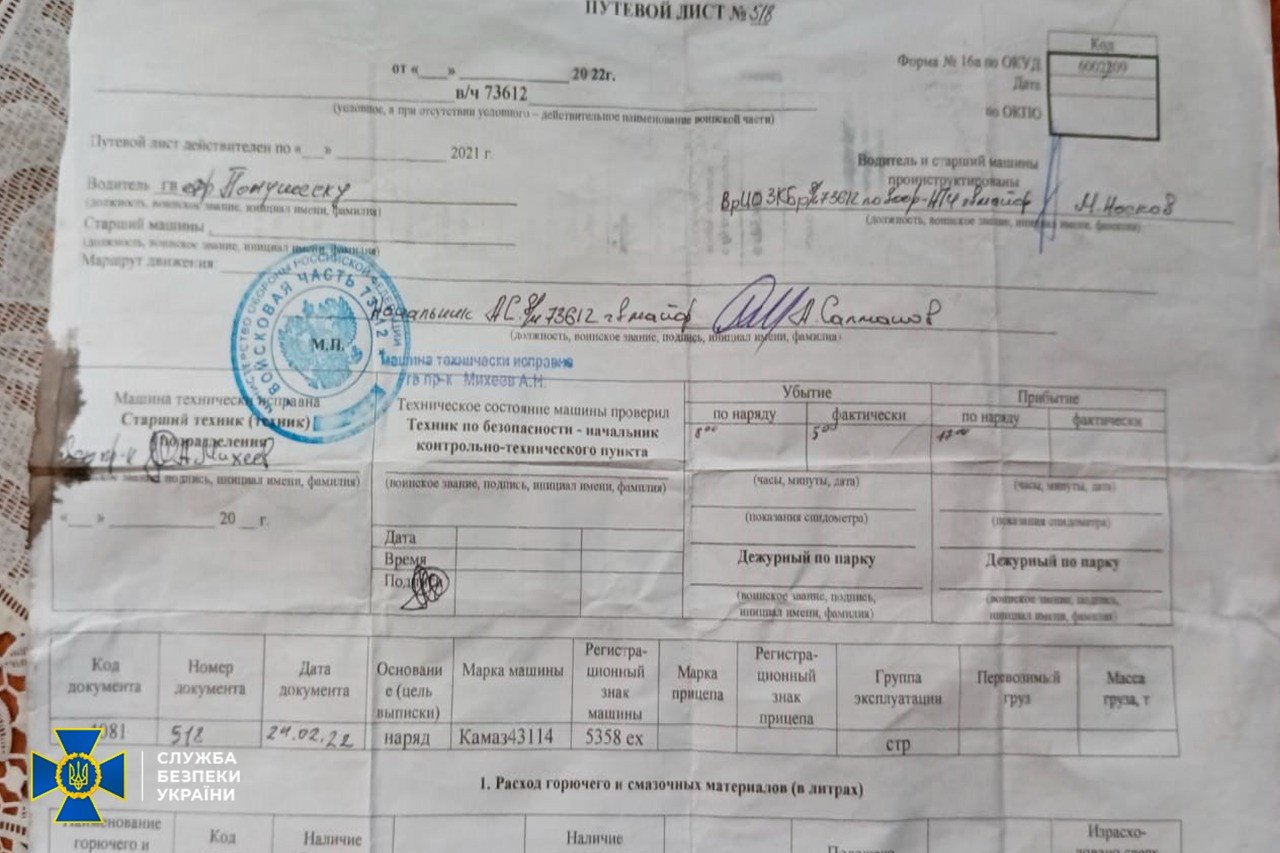 ПУТЕВОЙ ЛИСТ № 518
Код
Форма № 16а по ОКУД 6002209
от «___» ____________ 2022г.
Дата
в/ч 73612
по ОКПО
(условное, а при отсутствии условного – действительное наименование воинской части)
Путевой лист действителен по «___» ____________ 2021 г
Водитель и старший машины
проинструктированы
Водитель гв ефр
(должность, воинское звание, инициал имени, фамилия)
М.Носков
(должность, воинское звание, инициал имени, фамилия)
Старший машины
(должность, воинское звание, инициал имени, фамилия)
Маршрут движения
МИНИСТЕРСТВО ОБОРОНЫ РОССИЙСКОЙ ФЕДЕРАЦИИ
ВОЙСКОВАЯ ЧАСТЬ 73612
М.П.
Начальник АС в/ч 73612 гв майор А.Салмашов
(должность, воинское звание, подпись, инициал имени, фамилия)
Машина технически исправна
гв пр-к Михеев А.Н.
Машина технически исправна
Старший техник (техник)
подразделения
А.Михеев
воинское звание, подпись, инициал имени, фамилия)
«___» ____________ 20 __ г.
Техническое состояние машины проверил
Техник по безопасности - начальник
контрольно-технического пункта
(воинское звание, подпись, инициал имени, фамилия)
Дата
Время
Подпись
Убытие
Прибытие
по наряду
фактически
по наряду
фактически
8 00
5 00
17 00
(часы, минуты, дата)
(часы, минуты, дата)
(показания спидометра)
(показания спидометра)
Дежурный по парку
Дежурный по парку
(воинское звание, подпись,
инициал имени, фамилия)
(воинское звание, подпись,
инициал имени, фамилия)
Код документа
Номер документа
Дата документа
Основание (цель выписки)
Марка машины
Регистра-ционный знак машины
Марка прицепа
Регистра-ционный знак прицепа
Группа эксплуатации
Перевозимый груз
Масса груза, т
1081 518 24.02.22 наряд Камаз43114 5358 ех стр
1. Расход горючего и смазочных материалов (в литрах)
Наименование
горючего и
Код
Наличие
Наличие
Израсхо-
СЛУЖБА
БЕЗПЕКИ
УКРАЇНИ